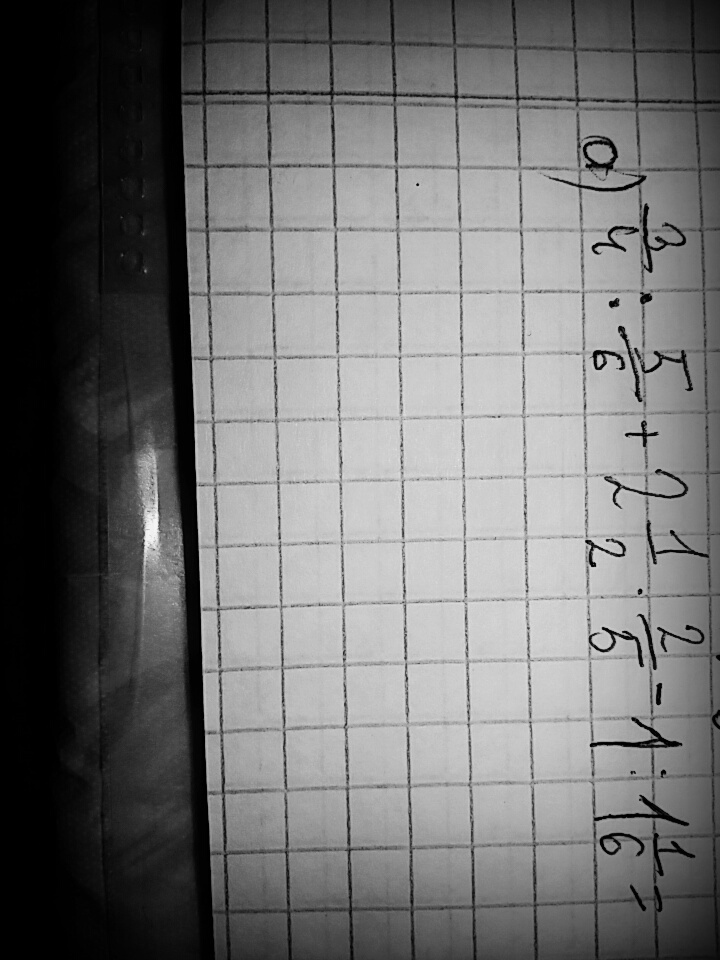 а) 3/4 : 5/6 + 2 1/2 · 2/5 - 1 : 1 1/6 =